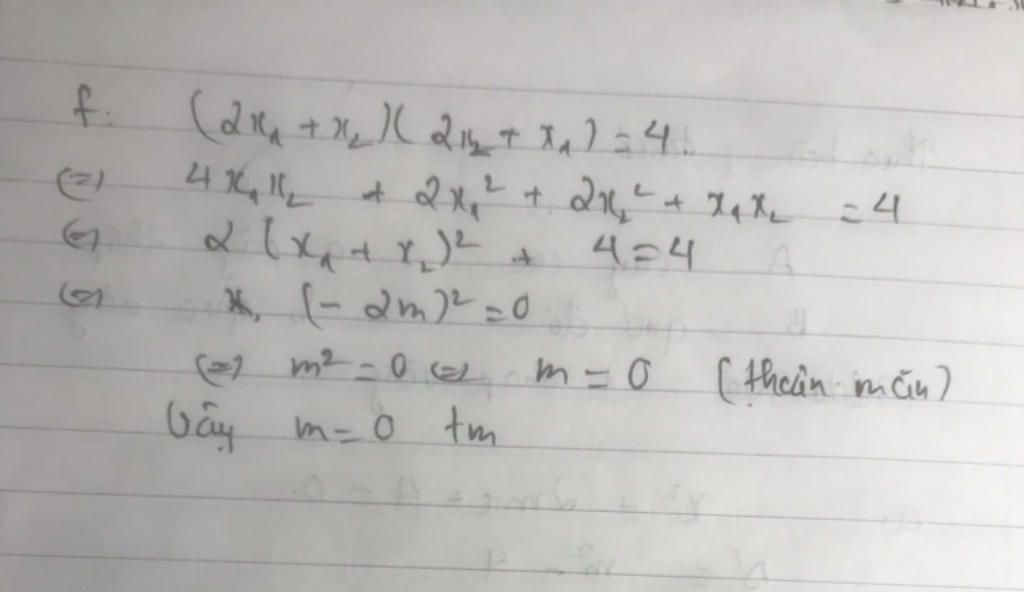 f: (2x₁ + x₂)(2x₂ + x₁) = 4.
(=) 4x₁x₂ + 2x₁² + 2x₂² + x₁x₂ = 4
(=) 2(x₁ + x₂)² + 4 = 4
(=) (- 2m)² = 0
(=) m² = 0 (=) m = 0 (thoản mãn)
Vậy m = 0 tm